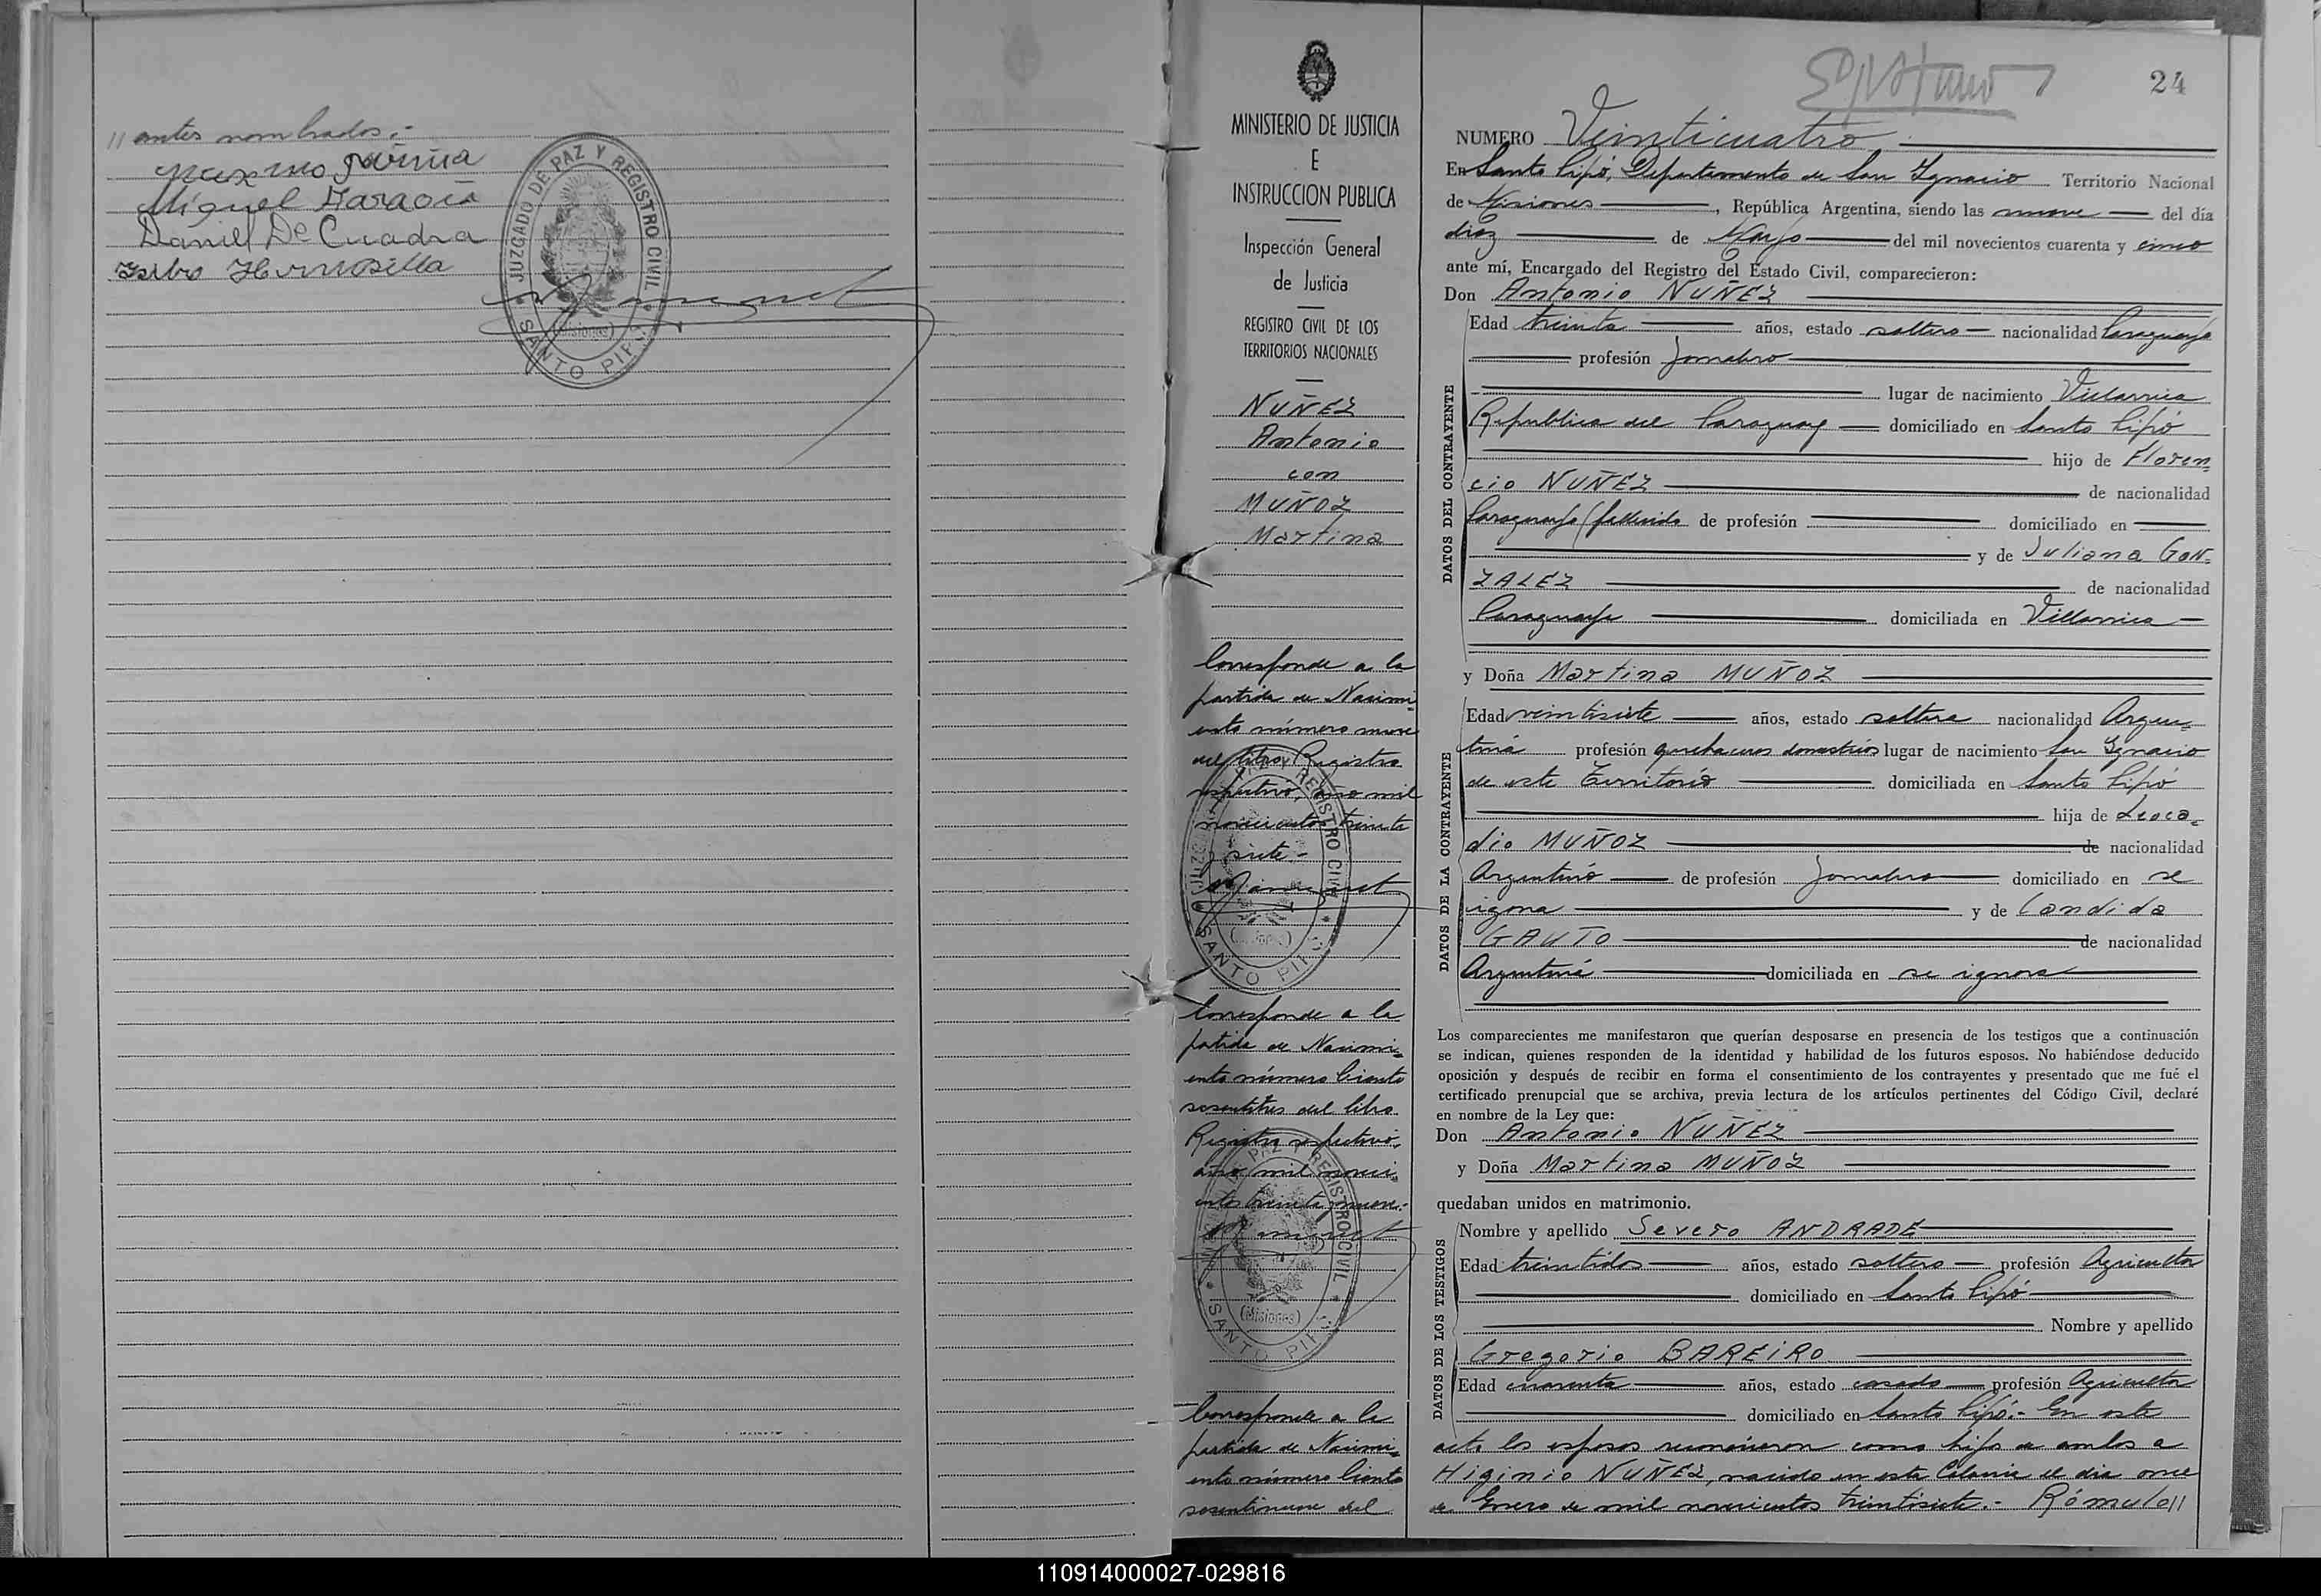 // antes nombrados.-
Maximo
Miguel
Daniel De Cuadra
Isibro Hermosilla
JUZGADO DE PAZ Y REGISTRO CIVIL
(Misiones)
SANTO PIPÓ
MINISTERIO DE JUSTICIA
E
INSTRUCCION PUBLICA
Inspección General
de Justicia
REGISTRO CIVIL DE LOS
TERRITORIOS NACIONALES
NUÑEZ
Antonio
con
MUÑOZ
Martina
Corresponde a la
partida de Nacimi-
ento número nueve
del libro Registro
respectivo, año mil
novecientos treinta
y siete-
JUZGADO DE PAZ Y REGISTRO CIVIL
(Misiones)
SANTO PIPÓ
Corresponde a la
partida de Nacimi-
ento número Ciento
sesentitres del libro
Registro respectivo,
año mil noveci-
entos treinta y nueve.-
PAZ Y REGISTRO CIVIL
(Misiones)
SANTO PIPÓ
Corresponde a la
partida de Nacimi-
ento número Ciento
sesentinueve del
24
NUMERO Veinticuatro
En Santo Pipó, Departamento de San Ignacio Territorio Nacional
de Misiones, República Argentina, siendo las nueve del día
diez de Mayo del mil novecientos cuarenta y cinco
ante mí, Encargado del Registro del Estado Civil, comparecieron:
Don Antonio NUÑEZ
DATOS DEL CONTRAYENTE
Edad treinta años, estado soltero nacionalidad Paraguaya
profesión Jornalero
lugar de nacimiento Villarrica
Republica del Paraguay domiciliado en Santo Pipó
hijo de Floren-
cio NUÑEZ de nacionalidad
Paraguaya (fallecido de profesión domiciliado en
y de Juliana GON-
ZALEZ de nacionalidad
Paraguaya domiciliada en Villarrica
y Doña Martina MUÑOZ
DATOS DE LA CONTRAYENTE
Edad veintisiete años, estado soltera nacionalidad Argen-
tina profesión quehaceres domesticos lugar de nacimiento San Ignacio
de este Territorio domiciliada en Santo Pipó
hija de Leoca-
dio MUÑOZ de nacionalidad
Argentino de profesión Jornalero domiciliado en se
ignora y de Candida
GAUTO de nacionalidad
Argentina domiciliada en se ignora
Los comparecientes me manifestaron que querían desposarse en presencia de los testigos que a continuación
se indican, quienes responden de la identidad y habilidad de los futuros esposos. No habiéndose deducido
oposición y después de recibir en forma el consentimiento de los contrayentes y presentado que me fué el
certificado prenupcial que se archiva, previa lectura de los artículos pertinentes del Código Civil, declaré
en nombre de la Ley que:
Don Antonio NUÑEZ
y Doña Martina MUÑOZ
quedaban unidos en matrimonio.
DATOS DE LOS TESTIGOS
Nombre y apellido Severo ANDRADE
Edad treintidos años, estado soltero profesión Agricultor
domiciliado en Santo Pipó
Nombre y apellido
Gregorio BAREIRO
Edad cuarenta años, estado casado profesión Agricultor
domiciliado en Santo Pipó.- En este
acto los esposos reconocieron como hijos de ambos a
Higinio NUÑEZ, nacido en esta Colonia el dia once
de Enero de mil novecientos treintisiete.- Rómulo//
110914000027-029816